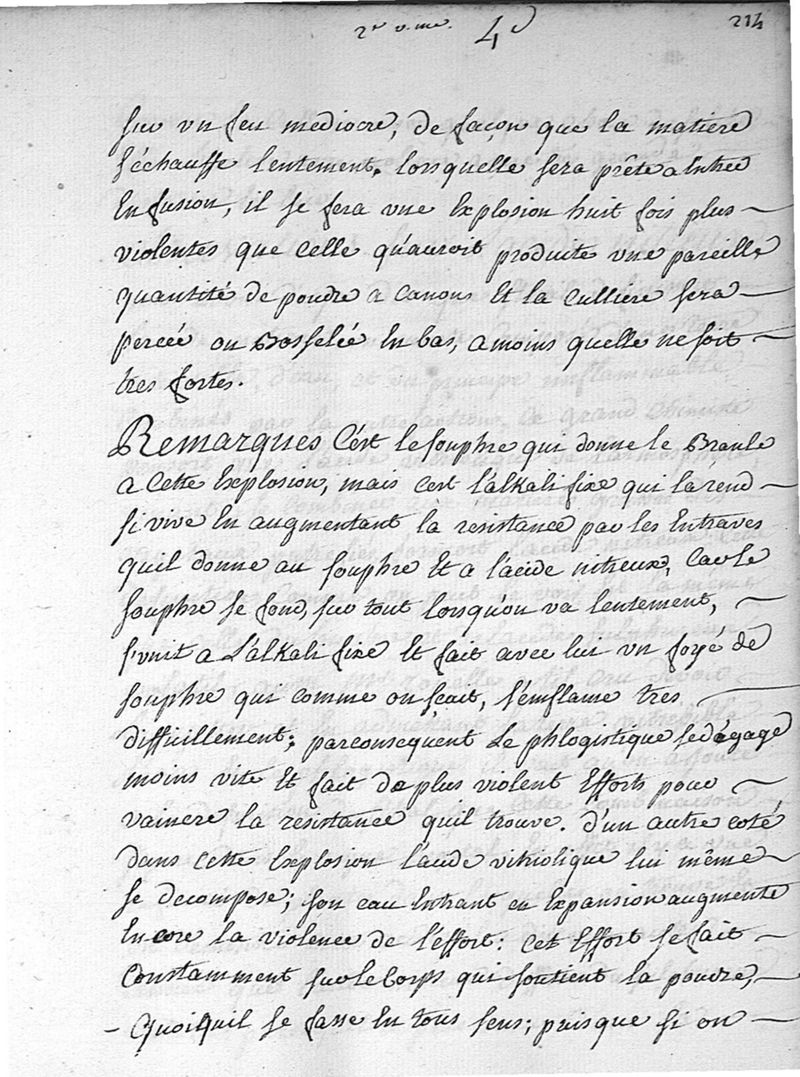 2e v.me 4e 214
sur un feu mediocre, de façon que la matiere
s'échauffe lentement. lorsquelle sera prête a Entrer
En fusion, il se fera une Explosion huit fois plus
violentes que celle qu'auroit produite une pareille
quantité de poudre a canons Et la Culliere sera
percée ou Bosselée En bas, amoins quelle ne soit
tres fortes.
Remarques C'est le souphre qui donne le Branle
a Cette Explosion, mais c'est l'alkali fixe qui la rend
si vive En augmentant la resistance par les Entraves
quil donne au souphre Et a l'acide nitreux, Car le
souphre se fond, sur tout lorsqu'on va lentement,
s'unit a L'alkali fixe Et fait avec lui un foyé de
souphre qui comme on sçait, s'enflame tres
difficillement; parconsequent Le phlogistique se dégage
moins vite Et fait de plus violent Efforts pour
vaincre la resistance quil trouve. d'un autre coté
dans cette Explosion l'acide vitriolique lui même
se decompose; son eau Entrant en Expansion augmente
Encore la violence de l'effort: Cet Effort se fait
Constamment sur le Corps qui soutient la poudre,
Quoiquil se fasse En tous sens; puisque si on